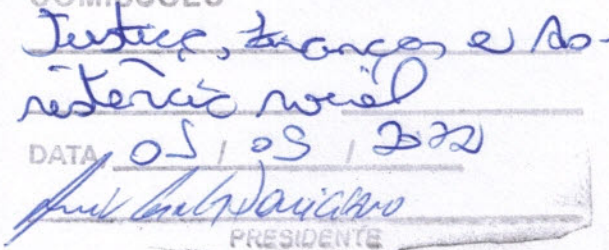 COMISSÕES
Justiça, Finanças, e As-
sistência social
DATA 05 / 09 / 2022
PRESIDENTE